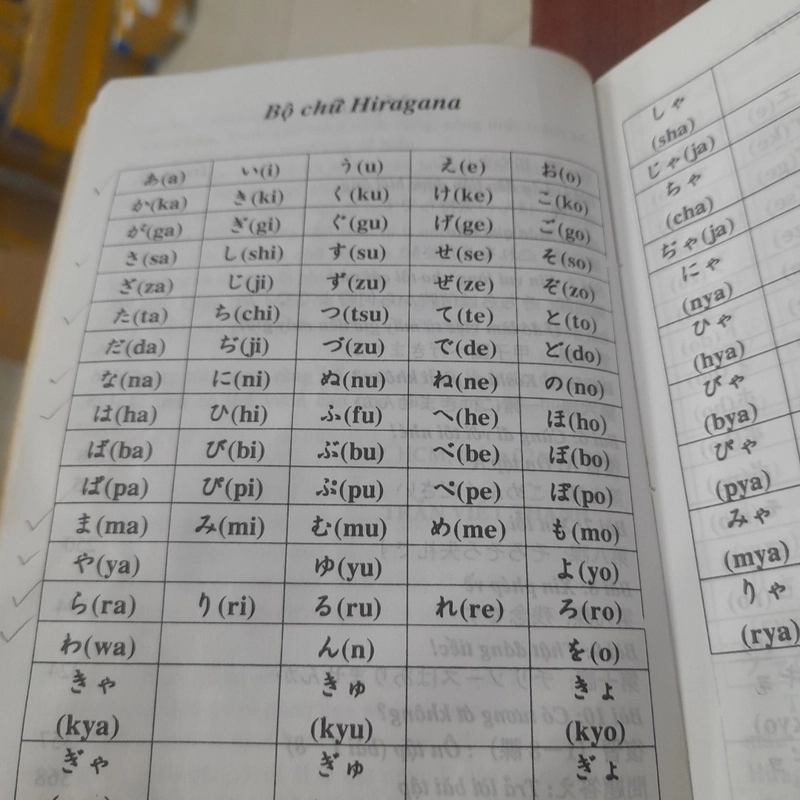 Bộ chữ Hiragana
あ(a) い(i) う(u) え(e) お(o)
か(ka) き(ki) く(ku) け(ke) こ(ko)
が(ga) ぎ(gi) ぐ(gu) げ(ge) ご(go)
さ(sa) し(shi) す(su) せ(se) そ(so)
ざ(za) じ(ji) ず(zu) ぜ(ze) ぞ(zo)
た(ta) ち(chi) つ(tsu) て(te) と(to)
だ(da) ぢ(ji) づ(zu) で(de) ど(do)
な(na) に(ni) ぬ(nu) ね(ne) の(no)
は(ha) ひ(hi) ふ(fu) へ(he) ほ(ho)
ば(ba) び(bi) ぶ(bu) べ(be) ぼ(bo)
ぱ(pa) ぴ(pi) ぷ(pu) ぺ(pe) ぽ(po)
ま(ma) み(mi) む(mu) め(me) も(mo)
や(ya) ゆ(yu) よ(yo)
ら(ra) り(ri) る(ru) れ(re) ろ(ro)
わ(wa) ん(n) を(o)
きゃ きゅ きょ
(kya) (kyu) (kyo)
ぎゃ ぎゅ ぎょ
しゃ
(sha)
じゃ(ja)
ちゃ
(cha)
ぢゃ(ja)
にゃ
(nya)
ひゃ
(hya)
びゃ
(bya)
ぴゃ
(pya)
みゃ
(mya)
りゃ
(rya)